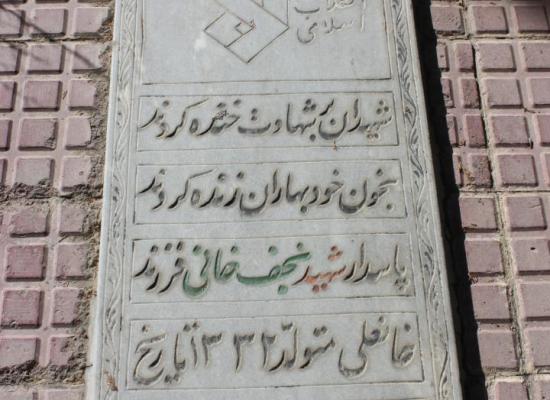 انقلاب
اسلامی
شهیدان بر شهادت خنده کردند
بخون خود بهاران زنده کردند
پاسدار شهید نجف خانی فرزند
خانعلی متولد ۱۳۳۲ تاریخ